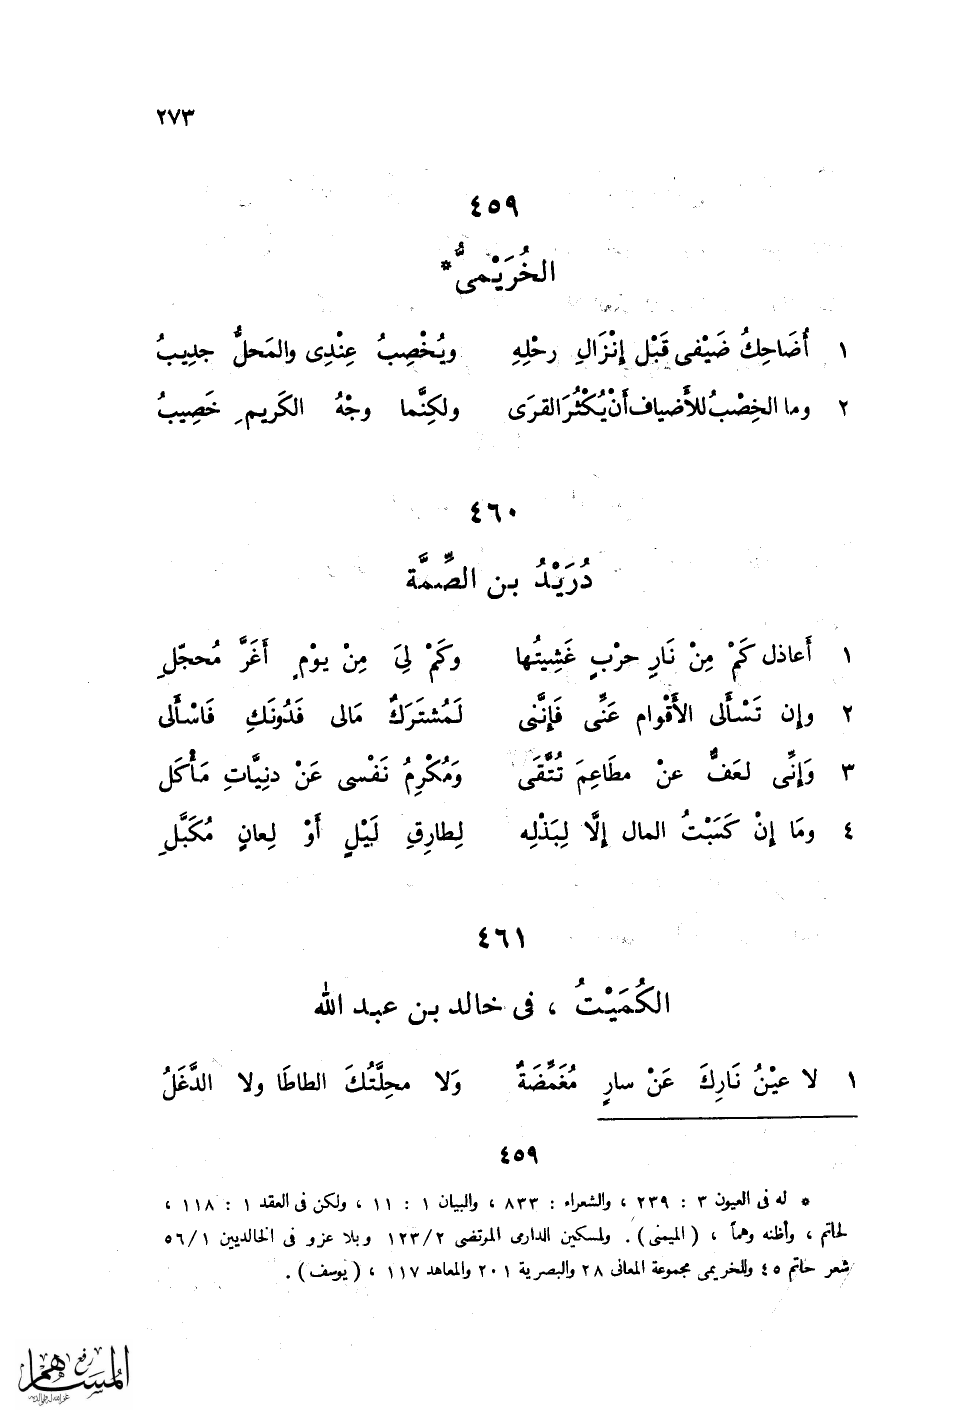 ٢٧٣
٤٥٩
الخُرَيْمىُّ *
١ أُضَاحِكُ ضَيْفى قَبْل إنْزَالِ رحْلِهِ ويُخْصِبُ عِنْدِى والمَحلُّ جدِيبُ
٢ وما الخِصْبُ للأَضياف أَنْ يُكْثُرَ القرَى ولكِنَّما وجْهُ الكَريمِ خَصِيبُ
٤٦٠
دُرَيْدُ بن الصِّمَّة
١ أَعاذل كَمْ مِنْ نَارِ حرْبٍ غَشِيتُها وكَمْ لِىَ مِنْ يوْمٍ أَغَرَّ مُحجّلِ
٢ وإن تَسْأَلى الأَقْوام عَنِّى فَإِنَّنى لَمُشتَركٌ مَالى فَدُونَكِ فَاسْأَلى
٣ وَإِنِّى لعَفٌّ عنْ مطَاعِمَ تُتَّقَى وَمُكْرِمُ نَفْسى عَنْ دنِيَّاتِ مَأْكَل
٤ ومَا إنْ كَسَبْتُ المال إلَّا لِبَذْلِه لِطارِقِ لَيْلٍ أَوْ لِعانٍ مُكَبَّلِ
٤٦١
الكُمَيْتُ ، فى خالد بن عبد الله
١ لا عيْنُ نَارِكَ عَنْ سارٍ مُغَمِّضَةٌ وَلا محلِّتُكَ الطاطَا ولا الدَّغَلُ
٤٥٩
* له فى العيون ٣ : ٢٣٩ ، والشعراء : ٨٣٣ ، والبيان ١ : ١١ ، ولكن فى العقد ١ : ١١٨ ،
لحاتم ، وأظنه وهماً ، ( الميمنى ) . ولمسكين الدارمى المرتضى ١٢٣/٢ وبلا عزو فى الخالديين ٥٦/١
شعر حاتم ٤٥ وللخريمى مجموعة المعانى ٢٨ والبصرية ٢٠١ والمعاهد ١١٧ ، ( يوسف ) .